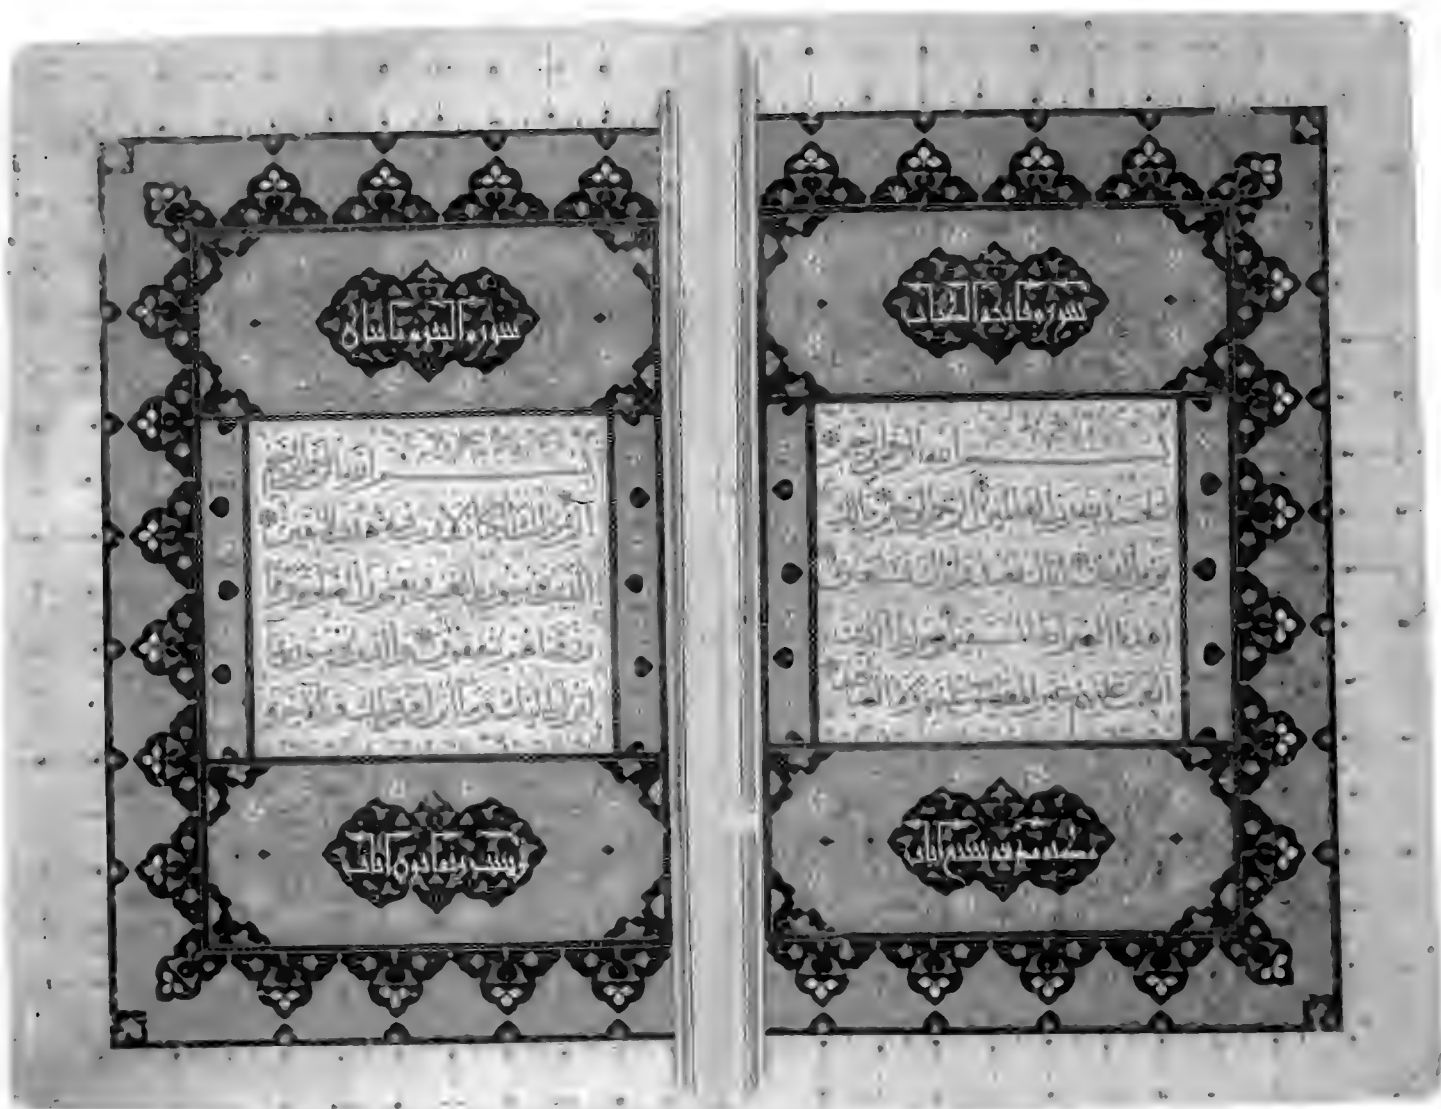 سورة فاتحة الكتاب
بسم الله الرحمن الرحيم
الحمد لله رب العالمين الرحمن الرحيم مالك
يوم الدين اياك نعبد واياك نستعين
اهدنا الصراط المستقيم صراط الذين
انعمت عليهم غير المغضوب عليهم ولا الضالين
سبع آيات
سورة البقرة مائتان
بسم الله الرحمن الرحيم
الم ذلك الكتاب لا ريب فيه هدى للمتقين
الذين يؤمنون بالغيب ويقيمون الصلوة ومما
رزقناهم ينفقون والذين يؤمنون بما
انزل اليك وما انزل من قبلك وبالاخرة
وست وثمانون آيات